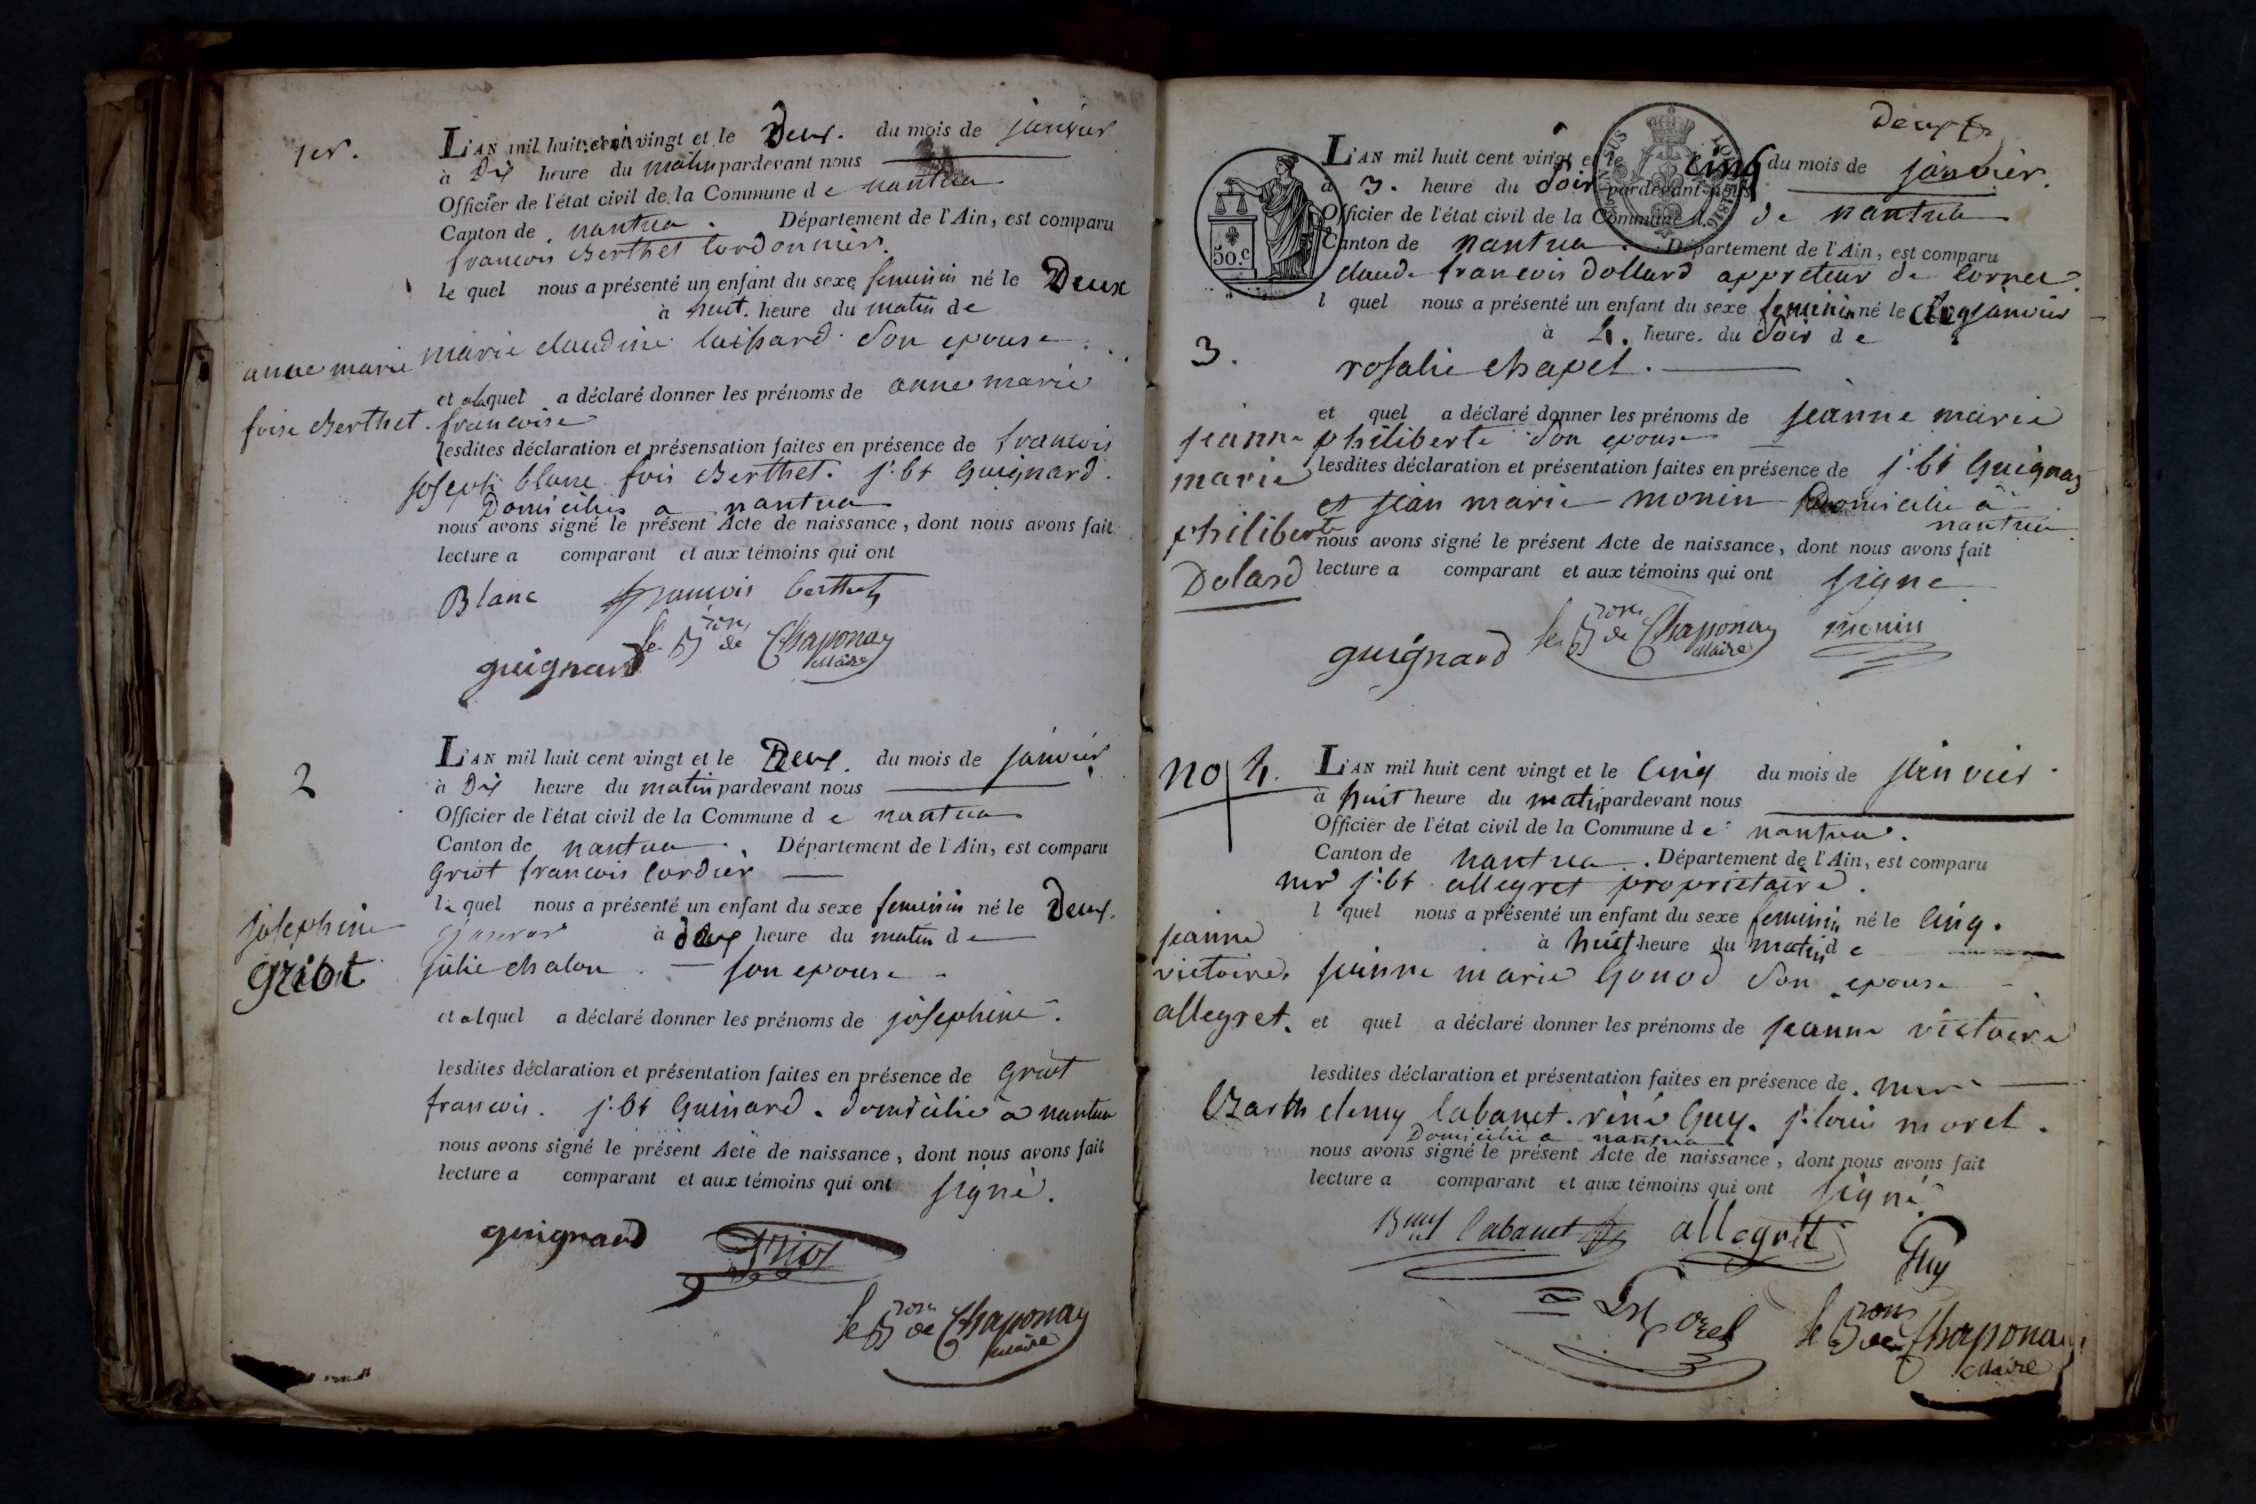 1er.
L'AN mil huit cent vingt et le Deux. du mois de janvier
à Dix heure du matin pardevant nous
Officier de l'état civil de la Commune d e nantua
Canton de nantua. Département de l'Ain, est comparu
francois Berthet Cordonnier.
le quel nous a présenté un enfant du sexe feminin né le Deux
à huit. heure du matin de
marie claudine son epouse
anne marie
et alaquel a déclaré donner les prénoms de anne marie
foise Berthet. francoise
lesdites déclaration et présensation faites en présence de francois
joseph blanc fois Berthet. j. bt Guignard.
Domicilies a nantua
nous avons signé le présent Acte de naissance, dont nous avons fait
lecture a comparant et aux témoins qui ont
Blanc francois berthet
guignard le Bron de Chaponay
Maire
2
L'AN mil huit cent vingt et le Deux. du mois de janvier
à Dix heure du matin pardevant nous
Officier de l'état civil de la Commune d e nantua
Canton de nantua. Département de l'Ain, est comparu
Griot francois Cordier
le quel nous a présenté un enfant du sexe feminin né le Deux.
josephine
janvier à deux heure du matin d e
Griot
julie chalon. son epouse
et alquel a déclaré donner les prénoms de josephine.
lesdites déclaration et présentation faites en présence de Griot
francois. j. bt Guinard. domicilié a nantua
nous avons signé le présent Acte de naissance, dont nous avons fait
lecture a comparant et aux témoins qui ont signé.
guignard Griot
le Bron de Chaponay
Maire
Deux
50.c
1816
L'AN mil huit cent vingt et le cinq du mois de janvier.
à 3. heure du Soir pardevant nous
Officier de l'état civil de la Commune d de nantua
Canton de nantua. Département de l'Ain, est comparu
claude francois Dollard appreteur de Corne.
l quel nous a présenté un enfant du sexe feminin né le cinq janvier
à 2. heure. du Soir d e
3.
rosalie chapel.
et quel a déclaré donner les prénoms de jeanne marie
jeanne marie philiberte Dolard
philiberte son epouse
lesdites déclaration et présentation faites en présence de j. bt Guignard
et jean marie monin Domicilie à
nantua.
nous avons signé le présent Acte de naissance, dont nous avons fait
lecture a comparant et aux témoins qui ont signe
guignard le Bron de Chaponay monin
Maire
no 4.
L'AN mil huit cent vingt et le cinq du mois de janvier
à huit heure du matin pardevant nous
Officier de l'état civil de la Commune d e nantua.
Canton de nantua. Département de l'Ain, est comparu
mr j. bt allegret propriétaire.
l quel nous a présenté un enfant du sexe feminin né le cinq.
à huit heure du matin d e
jeanne victoire allegret.
jeanne marie Gonod son epouse
et quel a déclaré donner les prénoms de jeanne victoire
lesdites déclaration et présentation faites en présence de. mr
Barth elemy Cabanet. réné Guy. j. louis moret.
Domicilié a nantua
nous avons signé le présent Acte de naissance, dont nous avons fait
lecture a comparant et aux témoins qui ont signé
Cabanet allegret
Guy
le Bron de Chaponay
Maire